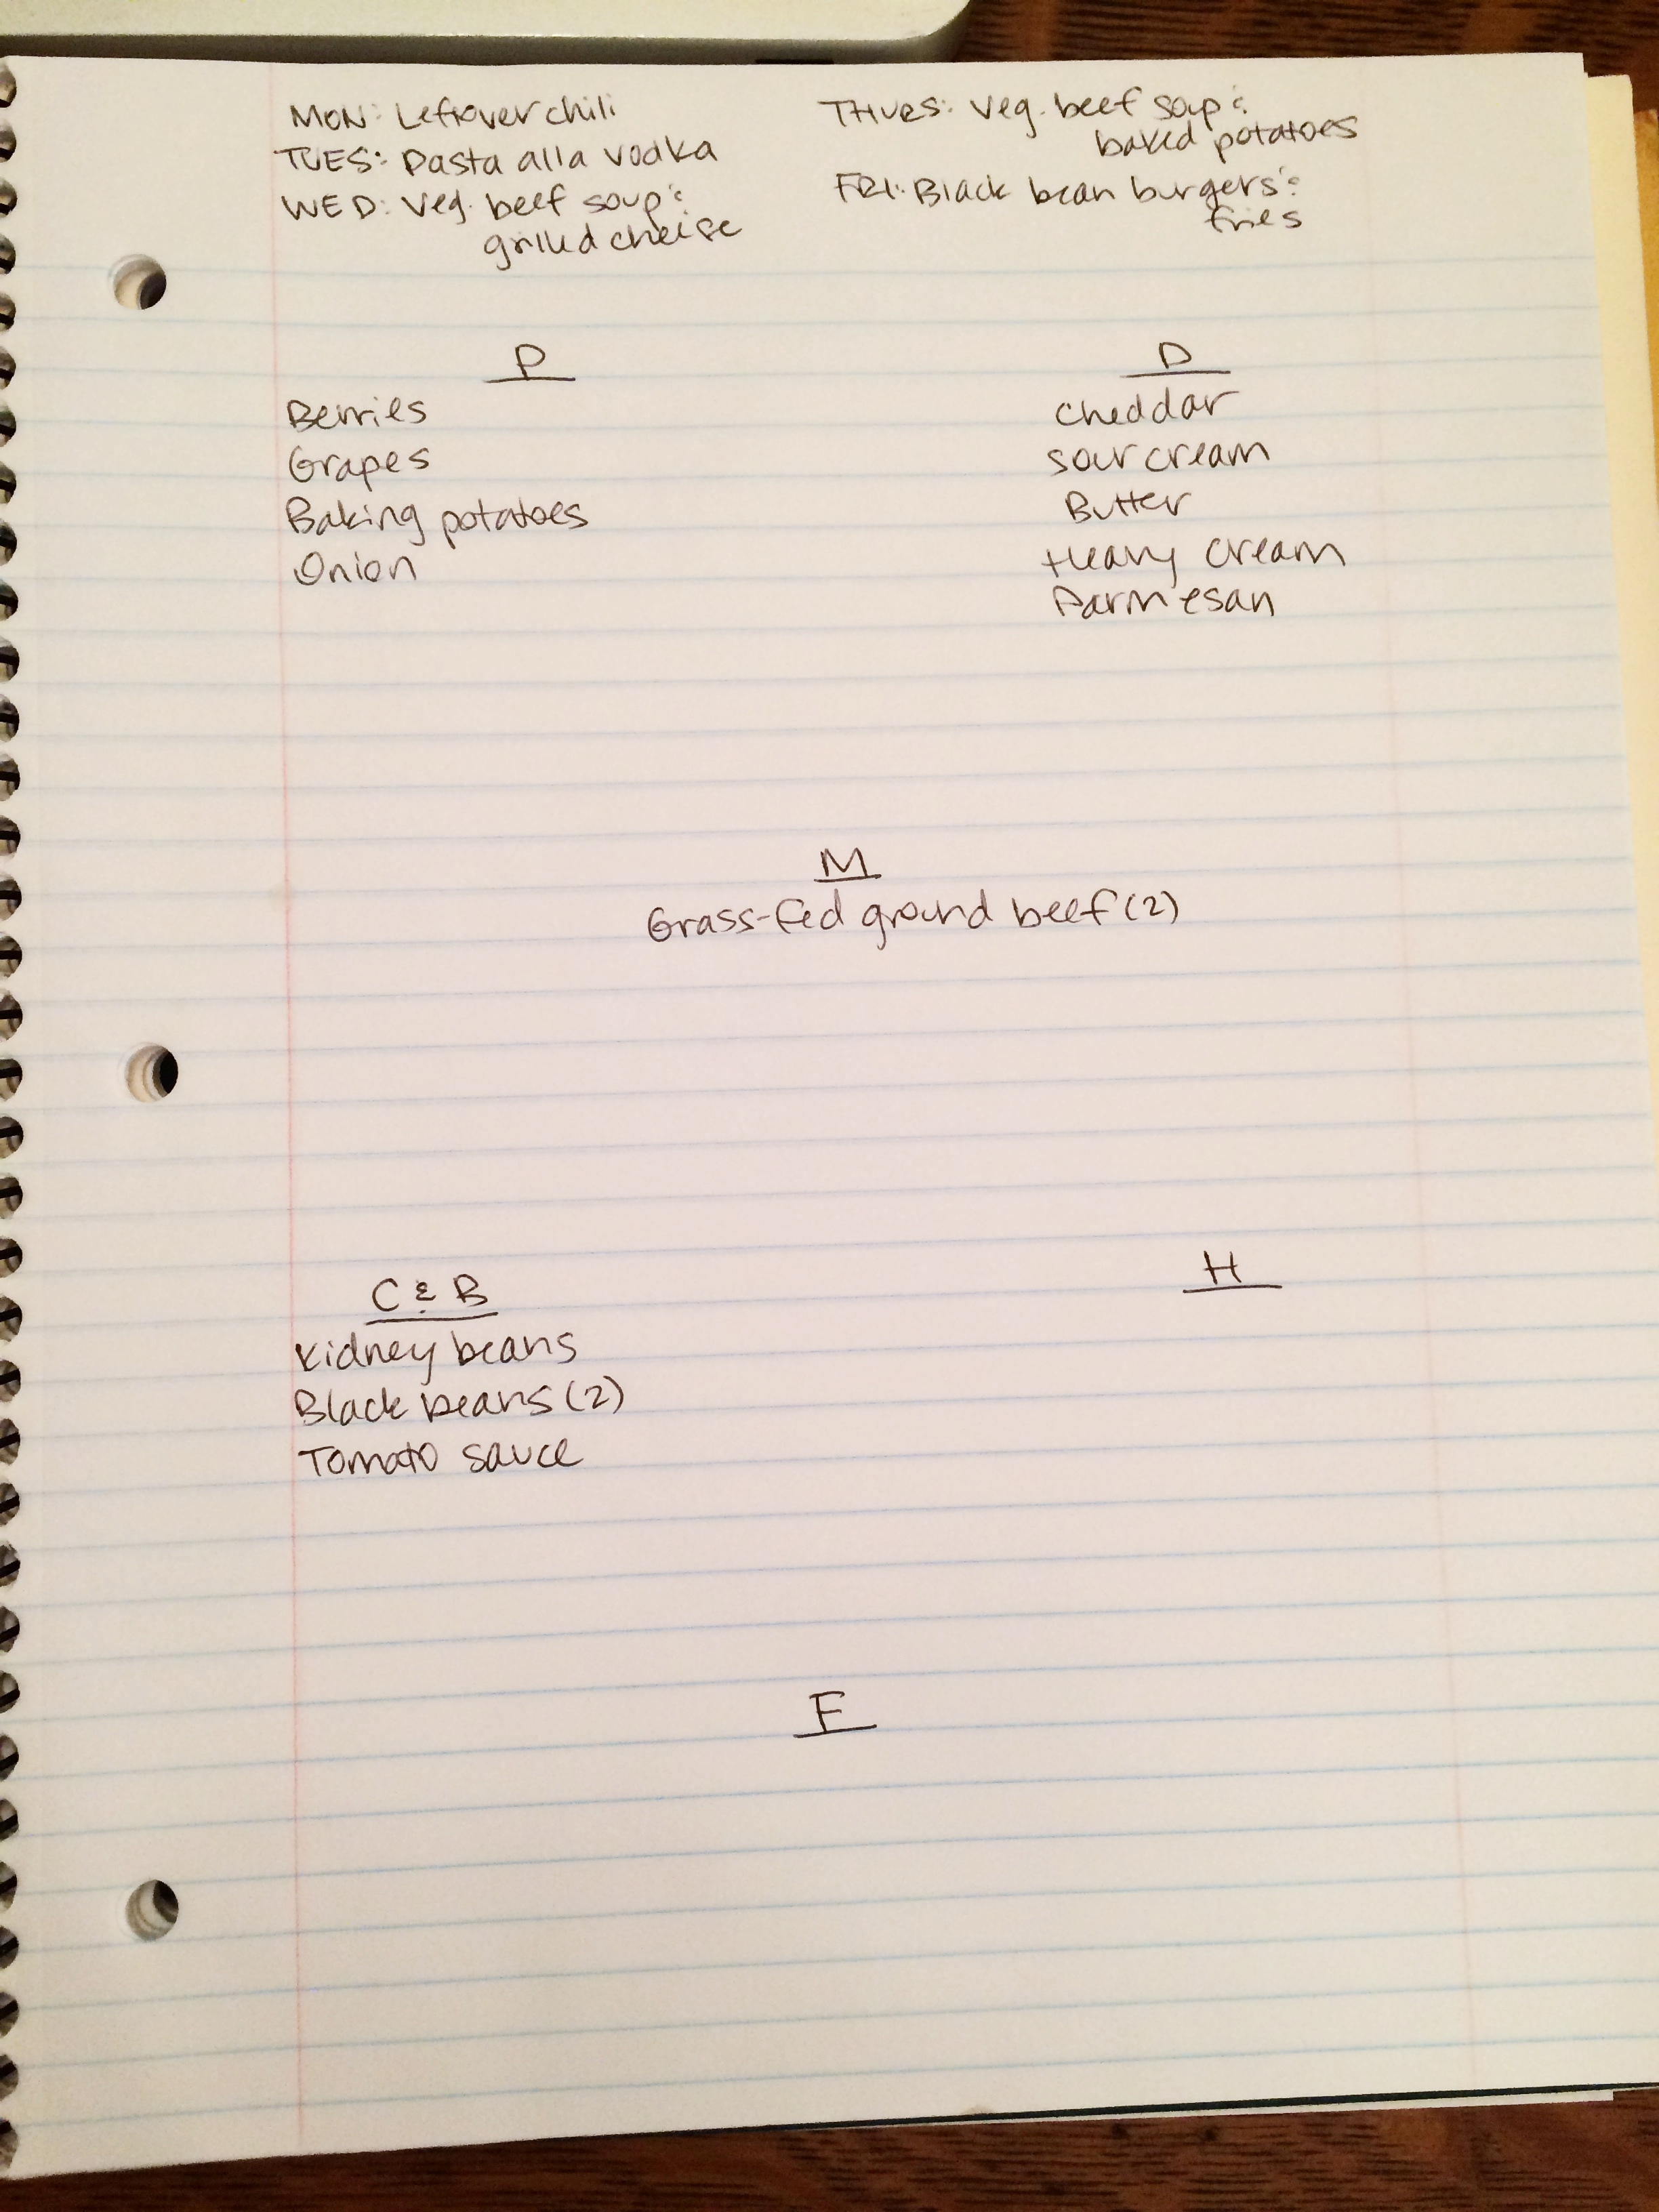 MON: Leftover chili
TUES: Pasta alla vodka
WED: Veg. beef soup &
grilled cheese
THURS: Veg. beef soup &
baked potatoes
FRI: Black bean burgers &
fries
P
Berries
Grapes
Baking potatoes
Onion
D
Cheddar
sour cream
Butter
Heavy cream
Parmesan
M
Grass-fed ground beef (2)
C & B
Kidney beans
Black beans (2)
Tomato sauce
H
F